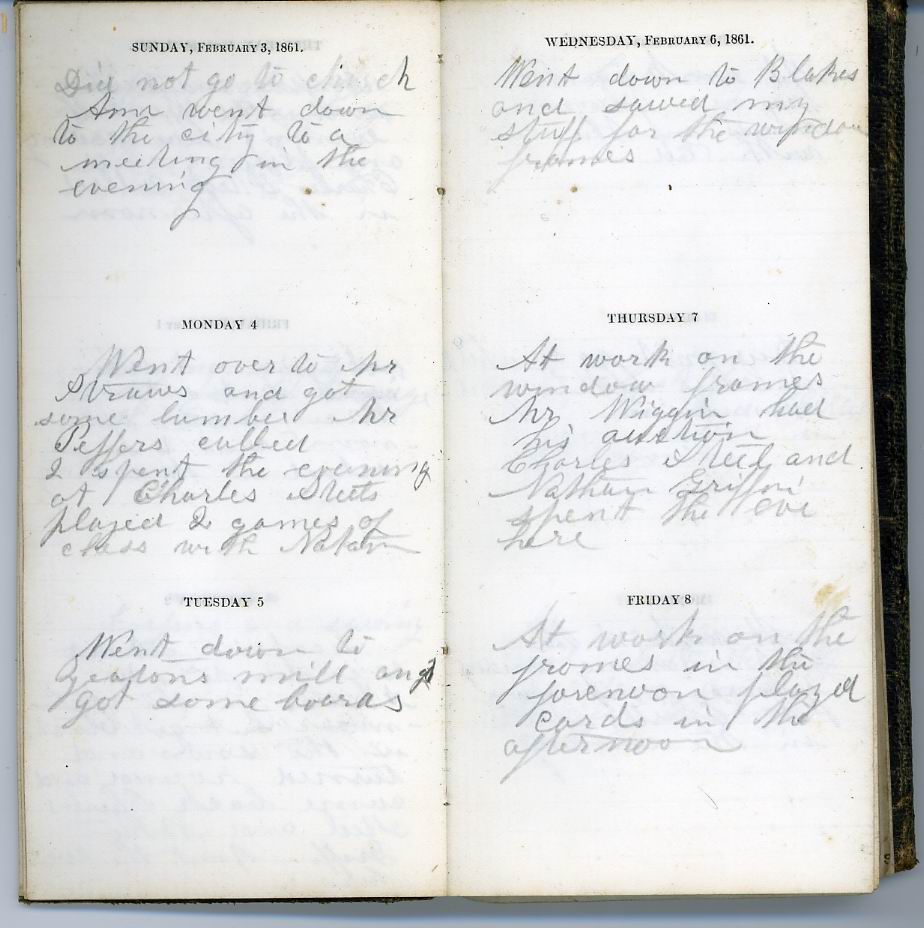 SUNDAY, FEBRUARY 3, 1861.
Did not go to church
Ann went down
to the city to a
meeting in the
evening
MONDAY 4
Went over to Mr
Straws and got
some lumber Mr
Peffers called
I spent the evening
at Charles Steets
played 2 games of
chess with Natan
TUESDAY 5
Went down to
Yeatons mill and
got some boards
WEDNESDAY, FEBRUARY 6, 1861.
Went down to Blakes
and sawed my
stuff for the window
frames
THURSDAY 7
At work on the
window frames
Mr Wiggin had
his auction
Charles Steet and
Nathan Griffin
spent the eve
here
FRIDAY 8
At work on the
frames in the
forenoon played
cards in the
afternoon